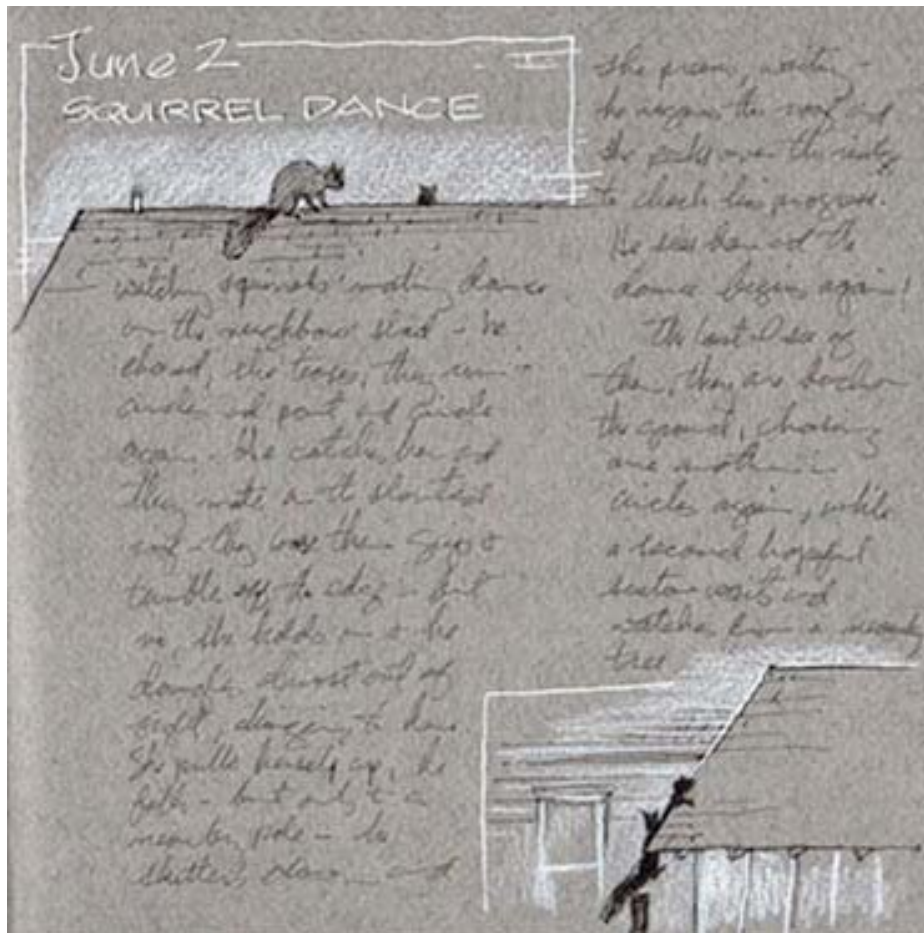 June 2
SQUIRREL DANCE
watching squirrels' mating dance
on the neighbours shed - he
chased, she teases, they run -
circle and pant and circle
again. He catches her and
they mate on the
roof - they lose their grip &
tumble off the edge - but
no, she holds on & he
dangles almost out of
sight, clinging to her.
She pulls herself up, he
falls - but only to a
nearby pole - he
skitters down and
she preens, waiting -
he regains the roof and
she peeks over the ridge
to check his progress.
He sees her and the
dance begins again!
The last I see of
them, they are back on
the ground, chasing
one another in
circles again, while
a second hopeful
waits and
watches from a nearby
tree